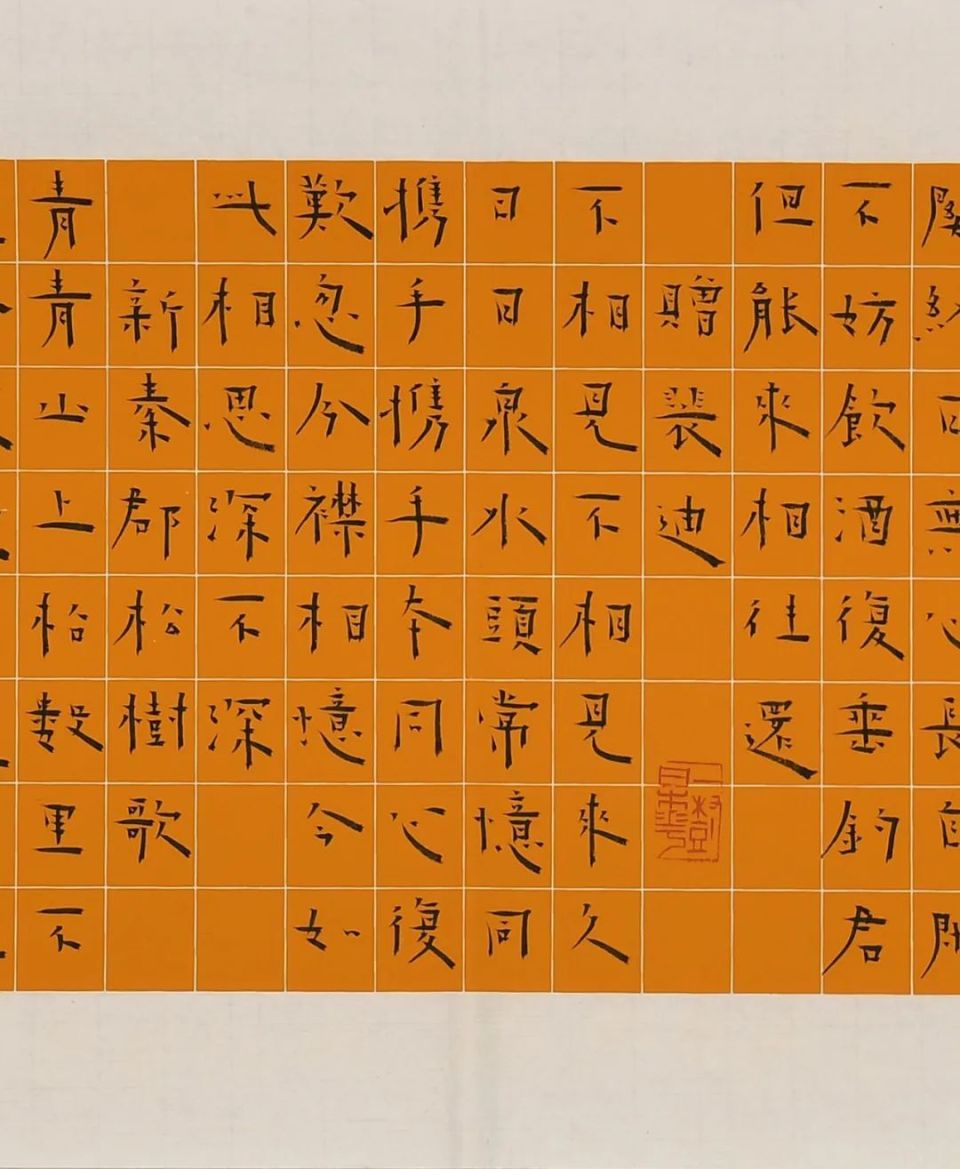 終日無心長自閒
不妨飲酒復垂釣君
但能來相往還
贈裴迪
不相見不相見來久
日日泉水頭常憶同
携手携手本同心復
歎忽分襟相憶今如
此相思深不深
新秦郡松樹歌
青青山上松數里不